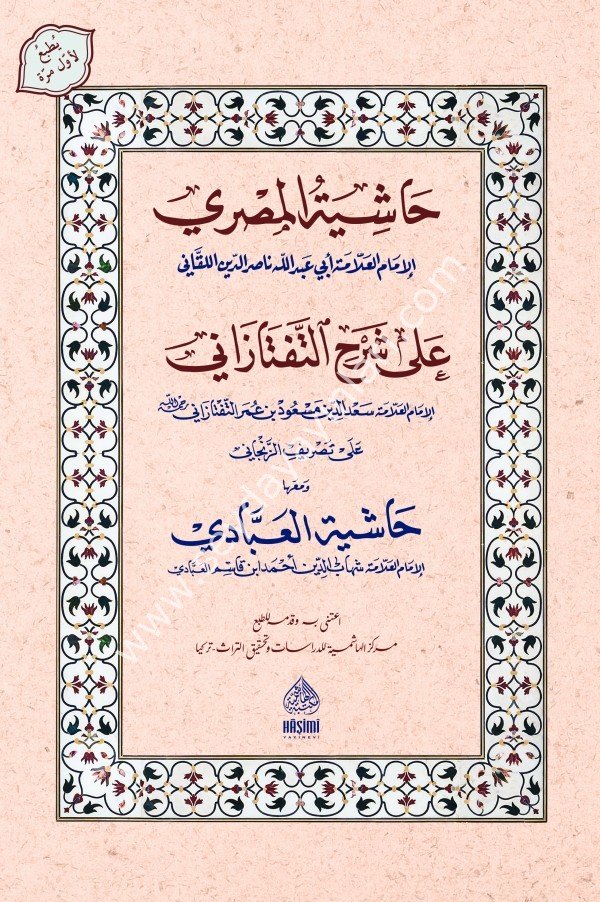 يُطبع
لأوّل مرّة
حَاشِيَةُ المَصْرِي
الإمَام العَلّامَة أبي عَبدالله ناصر الدّين اللقَّاني
عَلىٰ شَرْحِ التَّفتَازَاني
الإمَام العَلّامَة سَعْد الدِّين مَسْعُود بن عُمَر التَّفْتَازَاني رحمه الله
عَلىٰ تَصْرِيفِ الزَّنْجَاني
ومعَها
حَاشية العَبَّادي
الإمَام العَلّامَة شهَابُ الدِّين أحمَد ابن قاسِم العَبَّادي
اعتنى به وقدمه للطبع
مركز الهاشمية للدراسات وتحقيق التراث - تركيا
HÂŞİMİ
YAYINEVİ